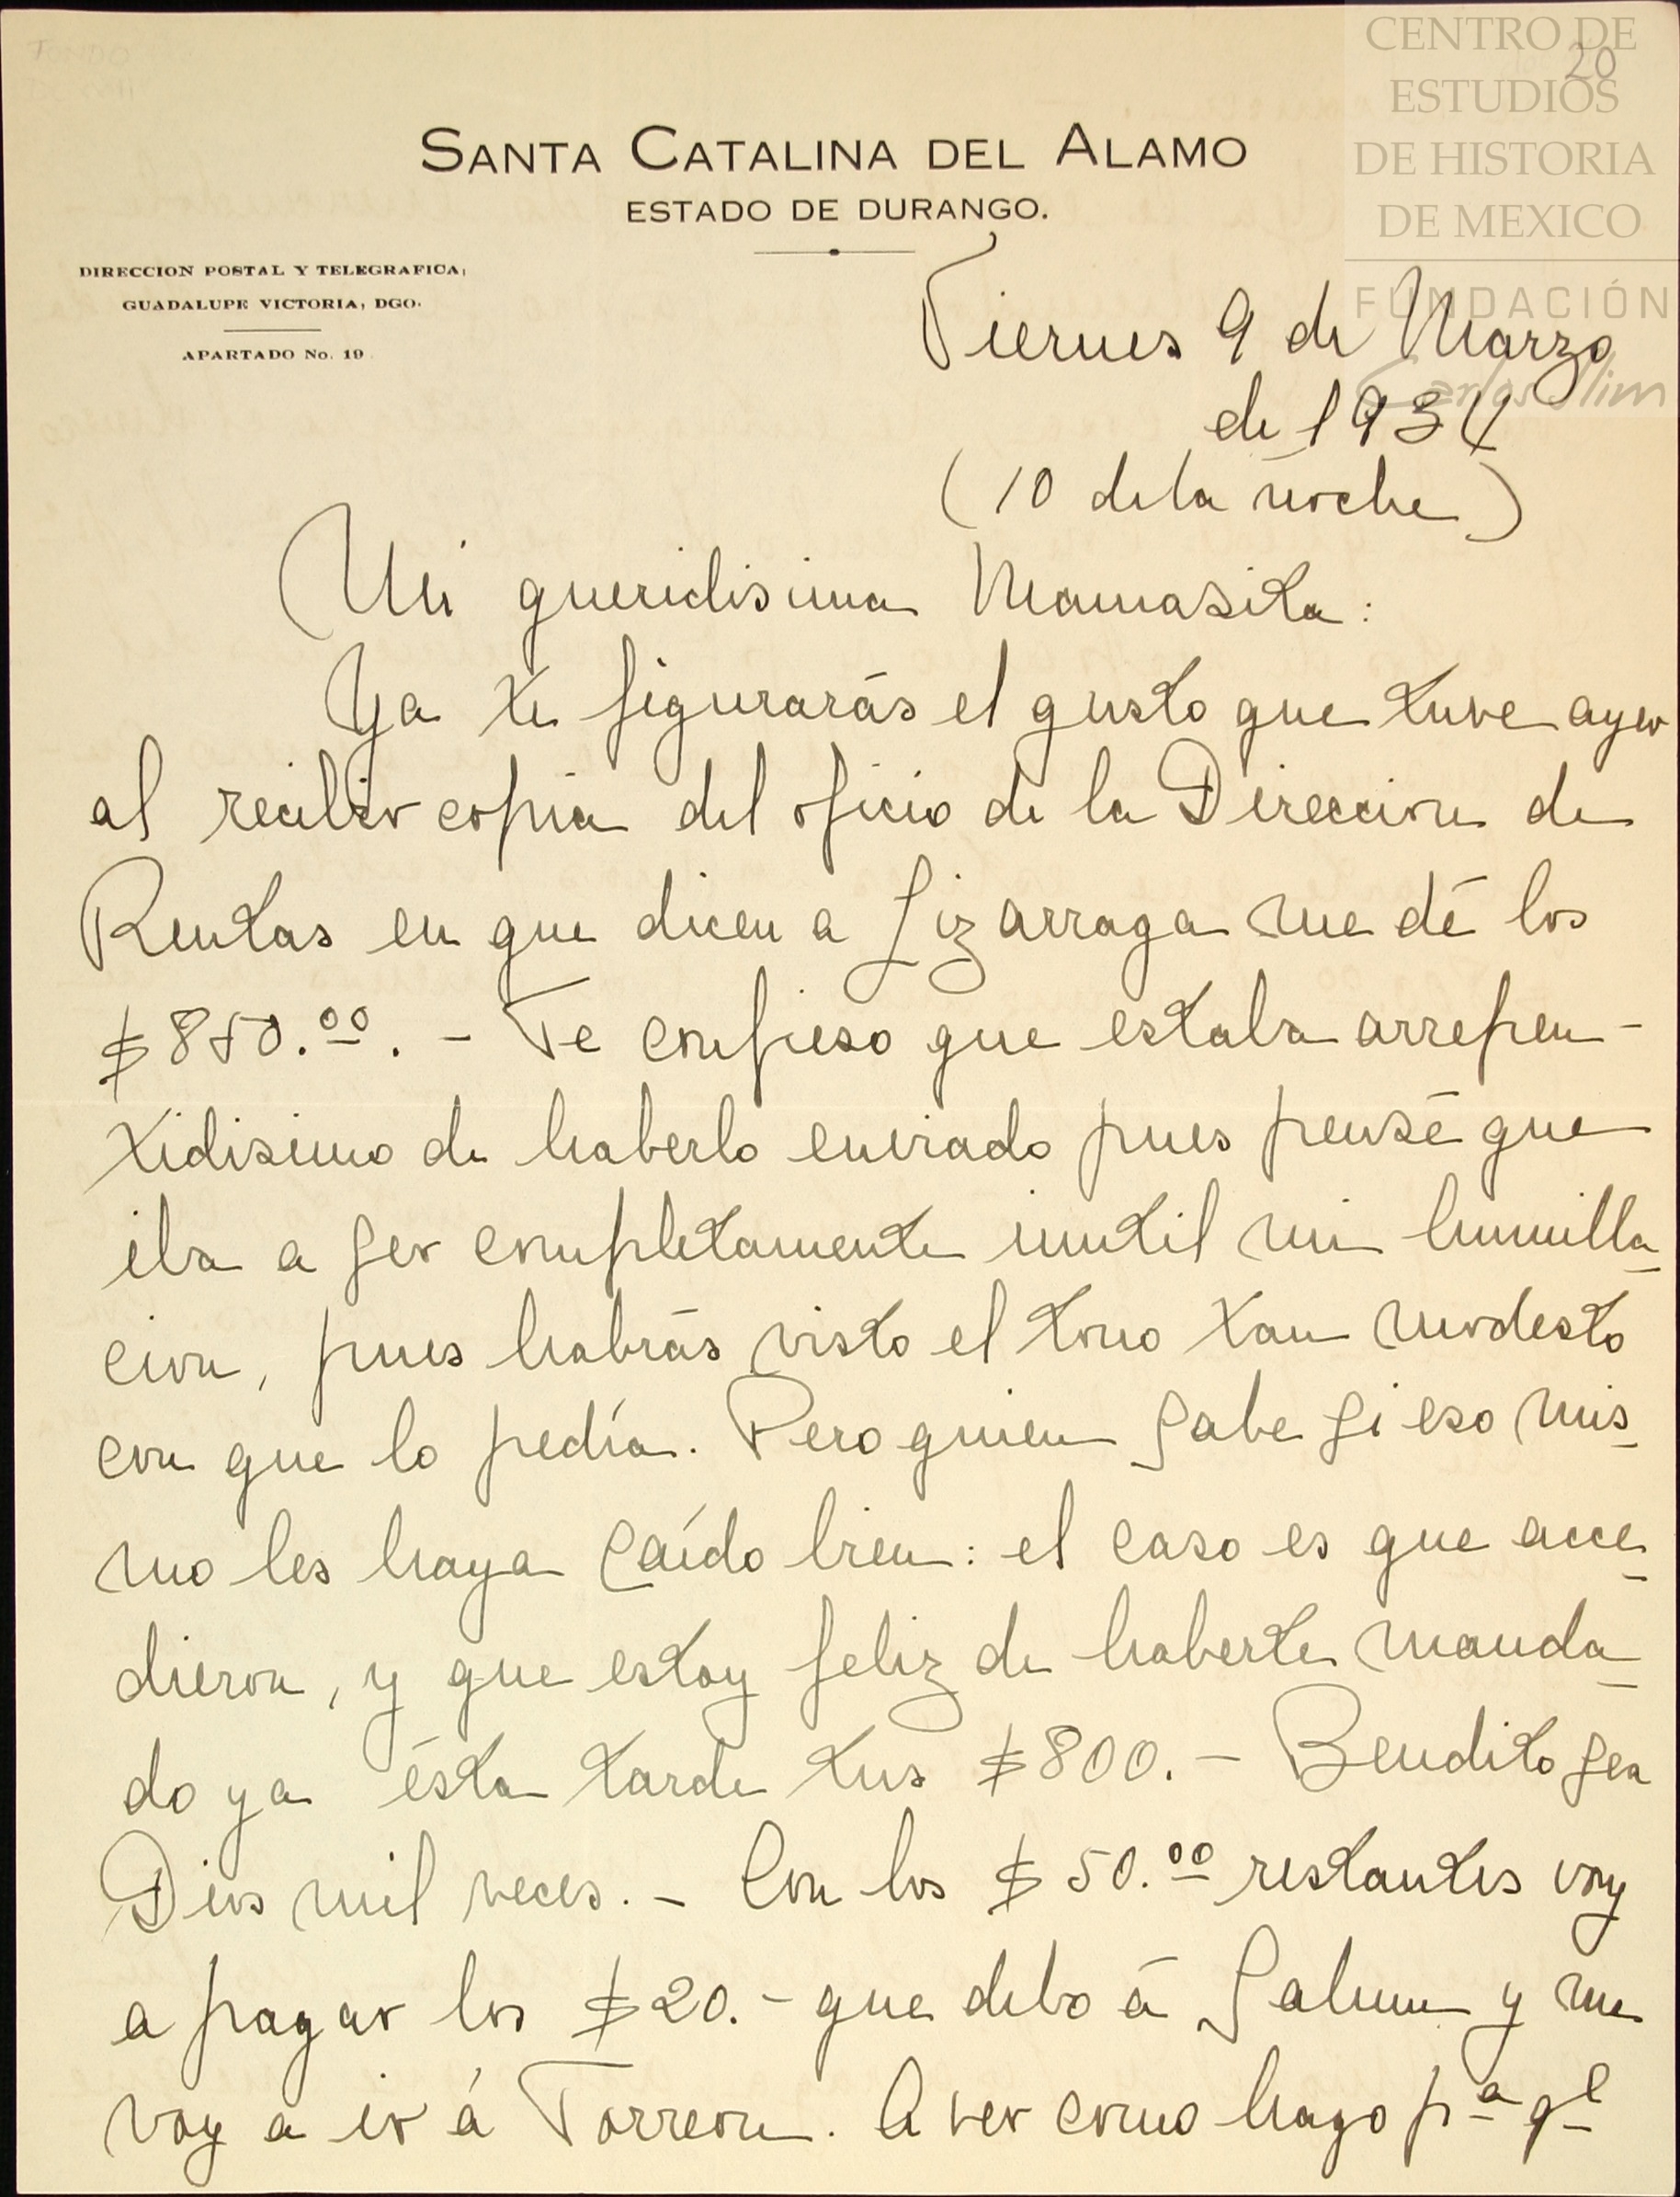 CENTRO DE
ESTUDIOS
DE HISTORIA
DE MEXICO
FUNDACIÓN
Carlos Slim
20
SANTA CATALINA DEL ALAMO
ESTADO DE DURANGO.
DIRECCION POSTAL Y TELEGRAFICA,
GUADALUPE VICTORIA, DGO.
APARTADO No. 19
Viernes 9 de Marzo
de 1934
(10 de la noche)
Mi queridisima Mamasita:
Ya te figurarás el gusto que tuve ayer
al recibir copia del oficio de la Direccion de
Rentas en que dicen a Lizarraga me dé los
$850.00. - Te confieso que estaba arrepen-
tidisimo de haberlo enviado pues pensé que
iba a ser completamente inutil mi humilla-
cion, pues habrás visto el tono tan modesto
con que lo pedía. Pero quien sabe si eso mis-
mo les haya caído bien: el caso es que acce-
dieron, y que estoy feliz de haberte manda-
do ya ésta tarde tus $800. - Bendito sea
Dios mil veces. - Con los $50.00 restantes voy
a pagar los $20.- que debo á Salum y me
voy a ir á Torreon. A ver como hago pa qe